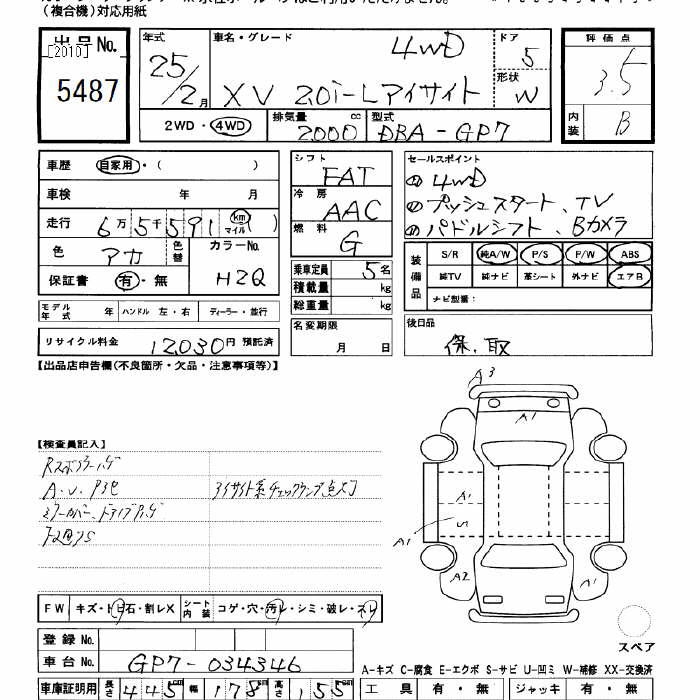 （複合機）対応用紙
出品No.
[2010]
5487
年式 車名・グレード ドア 評価点
25/2月 XV 2.0i-Lアイサイト 4WD 5 3.5
形状 W
内装 B
2WD・4WD 排気量 2000 cc 型式 DBA-GP7
車歴 自家用・（ ）
車検 年 月
走行 6万5千591 km マイル
色 アカ 色替 カラーNo. H2Q
保証書 有・無
シフト FAT
冷房 AAC
燃料 G
乗車定員 5名
積載量 kg
総重量 kg
名変期限 月 日
セールスポイント
① 4WD
② プッシュスタート、TV
③ パドルシフト、Bカメラ
装備品 S/R 純A/W P/S P/W ABS
純TV 純ナビ 革シート 外ナビ エアB
ナビ型番：
モデル年式 年 ハンドル 左・右 ディーラー・並行
後日品
保、取
リサイクル料金 12,030円 預託済
【出品店申告欄(不良箇所・欠品・注意事項等)】
【検査員記入】
A.U.P3色
アイサイト系チェックランプ点灯
A3
A1
A1
A1
U
A2
A1
FW キズ・トビ石・割レX シート内装 コゲ・穴・汚レ・シミ・破レ・スレ
スペア
登録 No.
車台 No. GP7-034346
A-キズ C-腐食 E-エクボ S-サビ U-凹ミ W-補修 XX-交換済
車庫証明用 長さ 445cm 幅 178cm 高さ 155cm
工具 有・無 ジャッキ 有・無